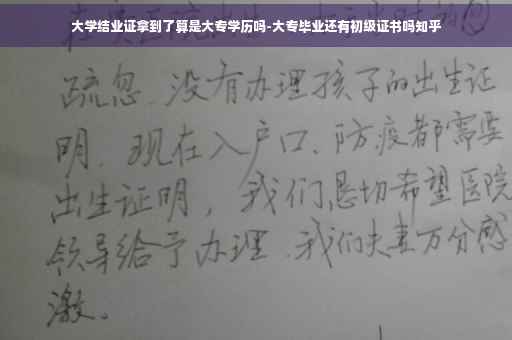 大学结业证拿到了算是大专学历吗-大专毕业还有初级证书吗知乎
疏忽、没有办理孩子的出生证
明、现在入户口、防疫都需要
出生证明，我们恳切希望医院
领导给予办理、我们夫妻万分感
激。